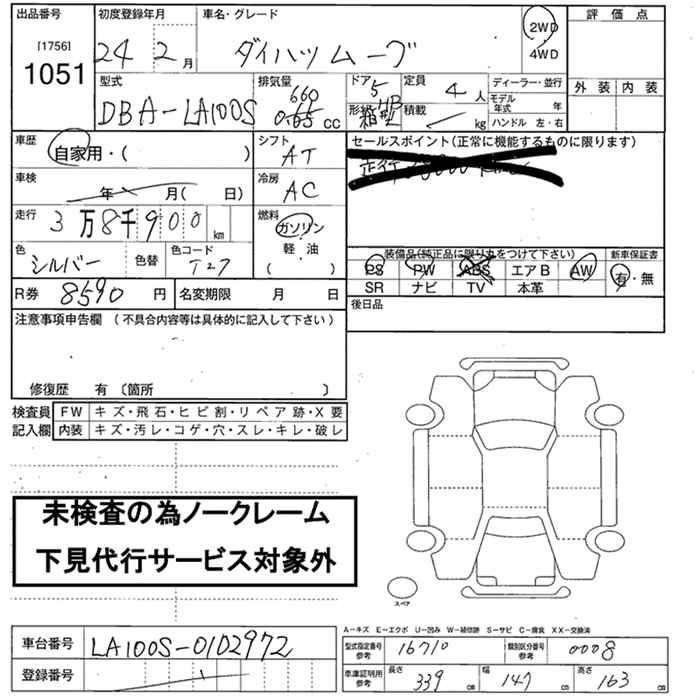 出品番号
[1756]
1051
初度登録年月
24 2 月
車名・グレード
ダイハツムーブ
2WD
4WD
評価点
外装 内装
型式
DBA-LA100S
排気量
660
0.65 cc
ドア 5
形状 HB 箱型
定員 4 人
積載 kg
ディーラー・並行
モデル年式 年
ハンドル 左・右
車歴
自家用・( )
シフト
AT
車検
年 月( 日)
冷房
AC
走行
3万8千900 km
燃料
ガソリン
軽・油
( )
色
シルバー
色替
色コード
T27
R券 8590 円
名変期限 月 日
セールスポイント(正常に機能するものに限ります)
装備品(純正品に限り丸をつけて下さい)
PS PW ABS エアB AW
SR ナビ TV 本革
新車保証書
有・無
後日品
注意事項申告欄 (不具合内容等は具体的に記入して下さい)
修復歴 有 〔箇所 〕
検査員記入欄
FW キズ・飛石・ヒビ割・リペア跡・X要
内装 キズ・汚レ・コゲ・穴・スレ・キレ・破レ
未検査の為ノークレーム
下見代行サービス対象外
スペア
A-キズ E-エクボ U-凹み W-補修跡 S-サビ C-腐食 XX-交換済
車台番号 LA100S-0102972
登録番号
型式指定番号 参考 16710
類別区分番号 参考 0008
車庫証明用 参考
長さ 339 cm
幅 147 cm
高さ 163 cm